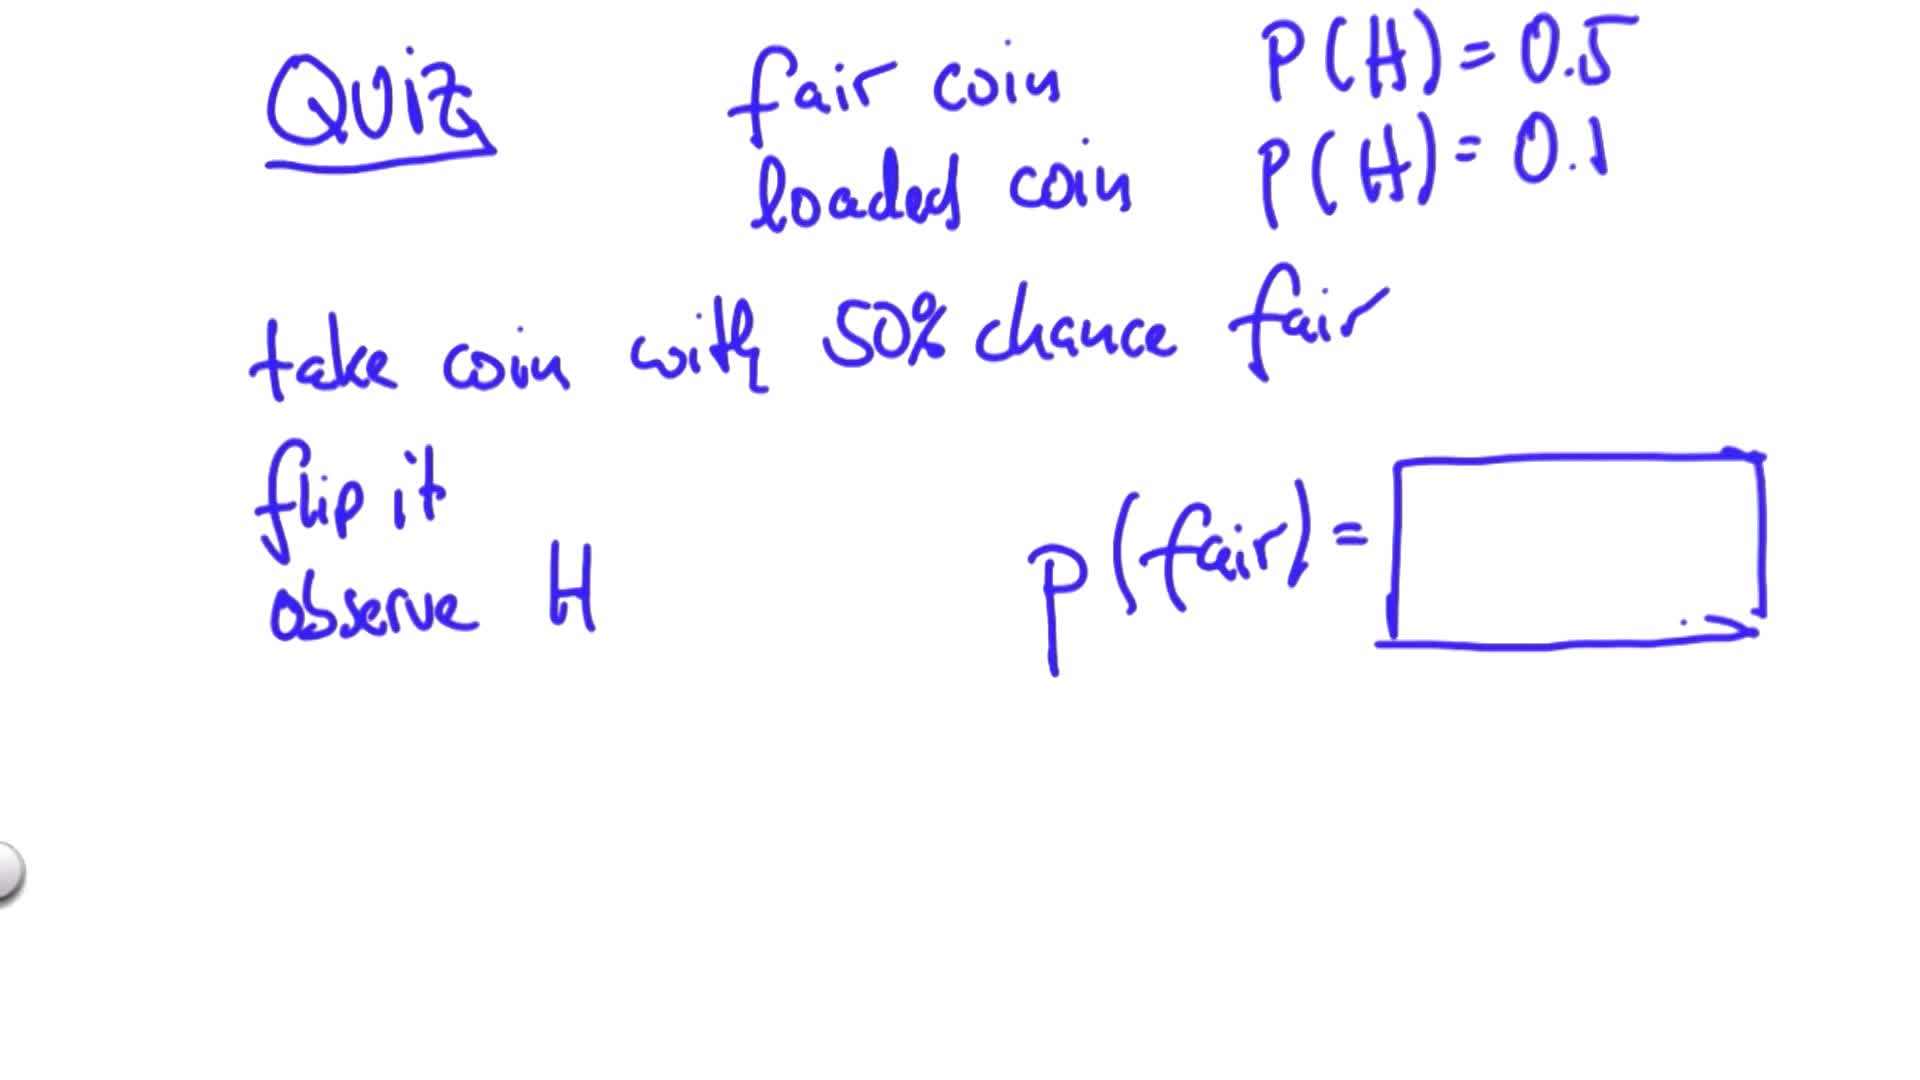 Quiz
fair coin P(H) = 0.5
loaded coin P(H) = 0.1
take coin with 50% chance fair
flip it
observe H
P(fair) =